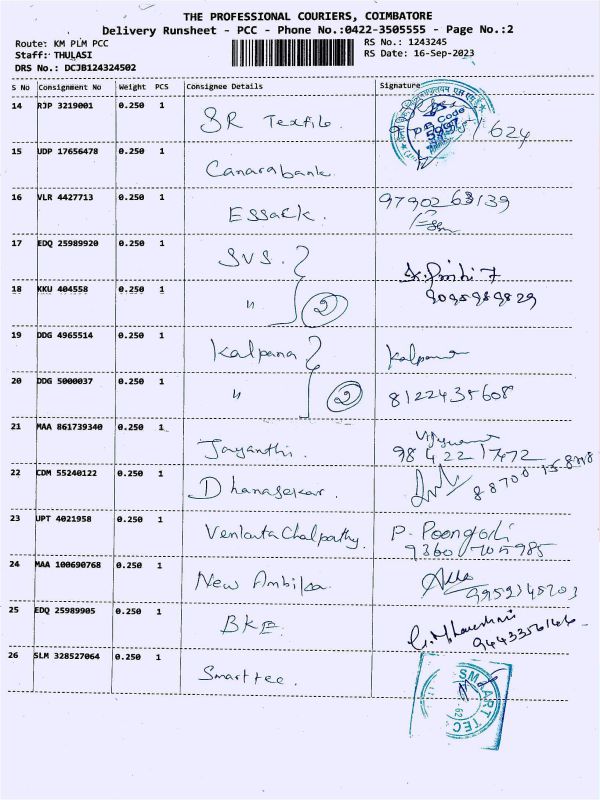 THE PROFESSIONAL COURIERS, COIMBATORE
Delivery Runsheet - PCC - Phone No.:0422-3505555 - Page No.:2
Route: KM PLM PCC
RS No.: 1243245
Staff: THULASI
RS Date: 16-Sep-2023
DRS No.: DCJB124324502
S No Consignment No Weight PCS Consignee Details Signature
14 RJP 3219001 0.250 1 SR Textile.
DB Code
624
15 UDP 17656478 0.250 1 Canarabank
16 VLR 4427713 0.250 1 Essack. 9790263139
17 EDQ 25989920 0.250 1 SVS.
18 KKU 404558 0.250 1 " 2 9095989829
19 DDG 4965514 0.250 1 Kalpana Kalpana
20 DDG 5000037 0.250 1 " 2 8122435608
21 MAA 861739340 0.250 1 Jayanthi. 98422 17472
22 CDM 55240122 0.250 1 Dhanasekar.
23 UPT 4021958 0.250 1 VenkataChalpathy. P. Poongodi
9360 705985
24 MAA 100690768 0.250 1 New Ambika
25 EDQ 25989905 0.250 1 BKE.
26 SLM 328527064 0.250 1 Smarttec.
SMART TEC